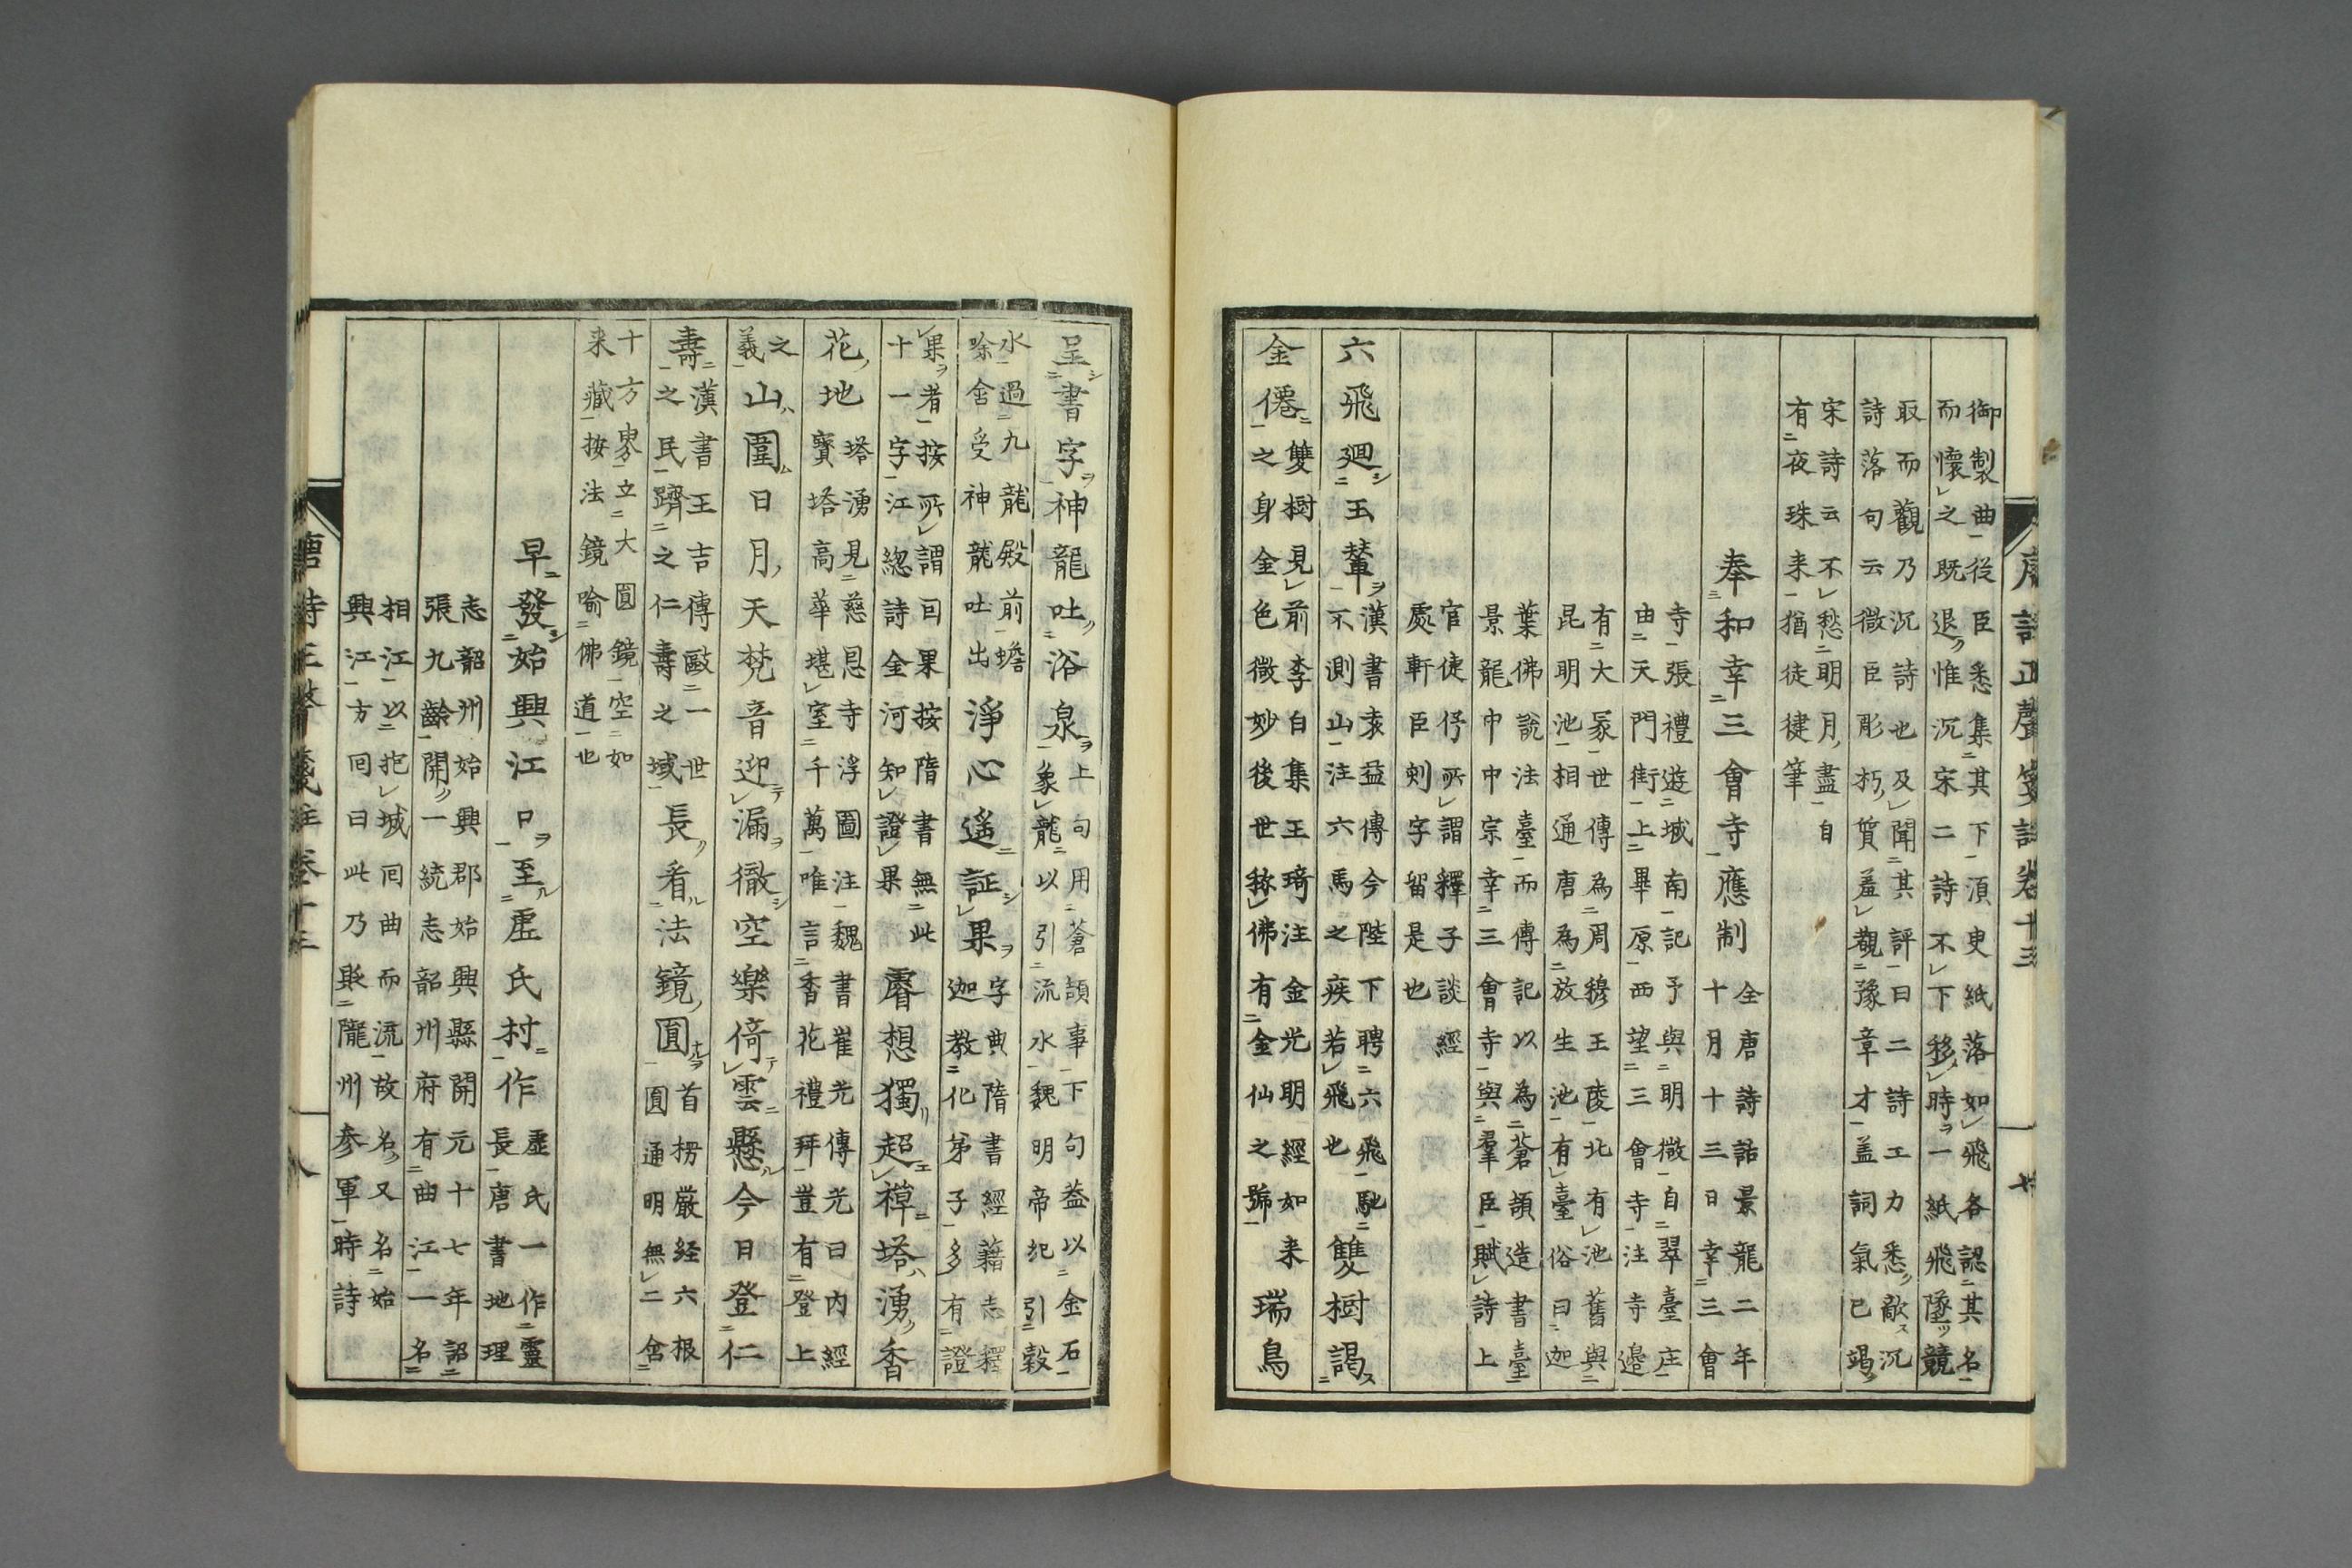 唐詩正聲箋註卷十三 七
御製曲從臣悉集其下湏臾紙落如飛各認其名
而懷之既退惟沉宋二詩不下移時一紙飛墜競
取而觀乃沉詩也及聞其評曰二詩工力悉敵沉
詩落句云微臣彫朽質羞覩豫章才盖詞氣已竭
宋詩云不愁明月盡自
有夜珠来猶徒健筆
奉和幸三會寺應制
全唐詩話景龍二年
十月十三日幸三會
寺張禮遊城南記予與明微自翠臺庄
由天門街上畢原西望三會寺注寺邉
有大冢世傳為周穆王陵北有池舊與
昆明池相通唐為放生池有臺俗曰迦
葉佛說法臺而傳記以為蒼頡造書臺
景龍中中宗幸三會寺與羣臣賦詩上
官倢伃所謂釋子談經
處軒臣刻字留是也
六飛廻玉輦
漢書袁益傳今陛下騁六飛馳
不測山注六馬之疾若飛也
雙樹謁
金僊
雙樹見前李白集王琦注金光明經如来
之身金色微妙後世稱佛有金仙之號
瑞鳥
呈書字神龍吐浴泉
上句用蒼頡事下句葢以金石
象龍以引流水魏明帝紀引穀
水過九龍殿前蟾
唅舍受神龍吐出
淨心遙証果
字典隋書經藉志釋
迦教化弟子多有證
果者按所謂囙果按隋書無此
十一字江総詩金河知證果
睿想獨超禪塔湧香
花地
塔湧見慈恩寺浮圖注魏書崔光傳光曰内經
寳塔高華堪室千萬唯言香花禮拜豈有登上
之
義
山圍日月天梵音迎漏徹空樂倚雲懸今日登仁
壽
漢書王吉傳敺一世
之民躋之仁壽之域
長看法鏡圓
首楞厳経六根
圓通明無二含
十方界立大圓鏡空如
来藏按法鏡喻佛道也
早發始興江口至虛氏村作
虛氏一作靈
長唐書地理
志韶州始興郡始興縣開元十七年詔
張九齡開一統志韶州府有曲江一名
相江以抱城囘曲而流故名又名始
興江方囘曰此乃貶隴州参軍時詩
唐詩正聲箋註卷十三 八